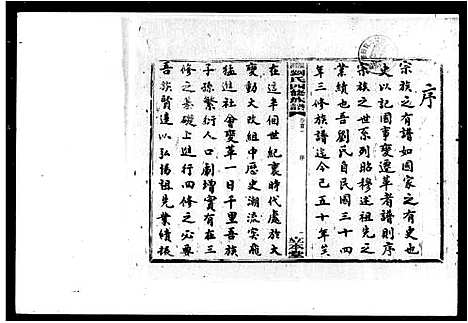 序
宗族之有譜如國家之有史也
史以記國事變遷革者譜則序
宗族之世系列昭穆述祖先之
業績也吾劉氏自民國三十四
年三修族譜迄今已五十年矣
劉氏四修族譜
序
在這半個世紀裏時代處於大
變動大改組中歷史潮流突飛
猛進社會變革一日千里吾族
子孫繁衍人口劇增實有在三
修之基礎上進行四修之必要
吾族賢達以弘揚祖先業績振